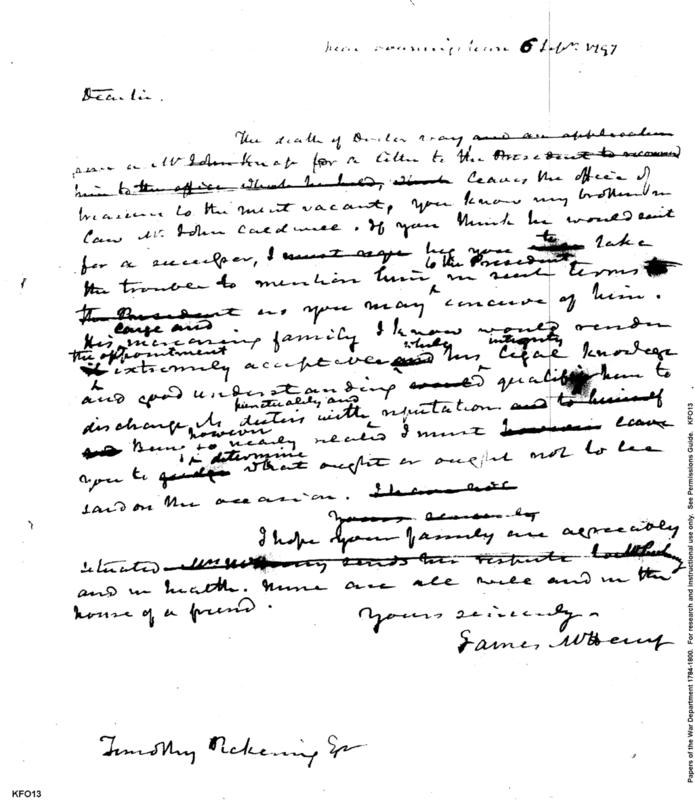 near Downingstown 6 Sepr. 1797
Dear Sir.
The death of Doctor Way and an application
from a Mr John Knap for a letter to the President to recommend
him to the office which he held, which leaves the office of
treasurer to the mint vacant, you know my brother in
law Mr. John Caldwell. If you think he would suit
for a successor, I must beg you to take
the trouble to mention him to the President in such terms to
the President as you may conceive of him.
large and
His increasing family I know would render
the appointment
it extremely acceptable and while his integrity legal knowledge
and good understanding would qualify him to
punctuality and
discharge its duties with reputation and to himself
however
and Being so nearly related I must however leave
to determine
you to judge what ought or ought not to be
said on the occasion. I have not
Yours sincerely
I hope your family are agreeably
situated Mrs McHenry sends her respects to Mrs Pickering
and in health. Mine are all well and in the
house of a friend.
Yours sincerely.
James McHenry
Timothy Pickering Esr
KFO13
Papers of the War Department 1784-1800. For research and instructional use only. See Permissions Guide. KFO13